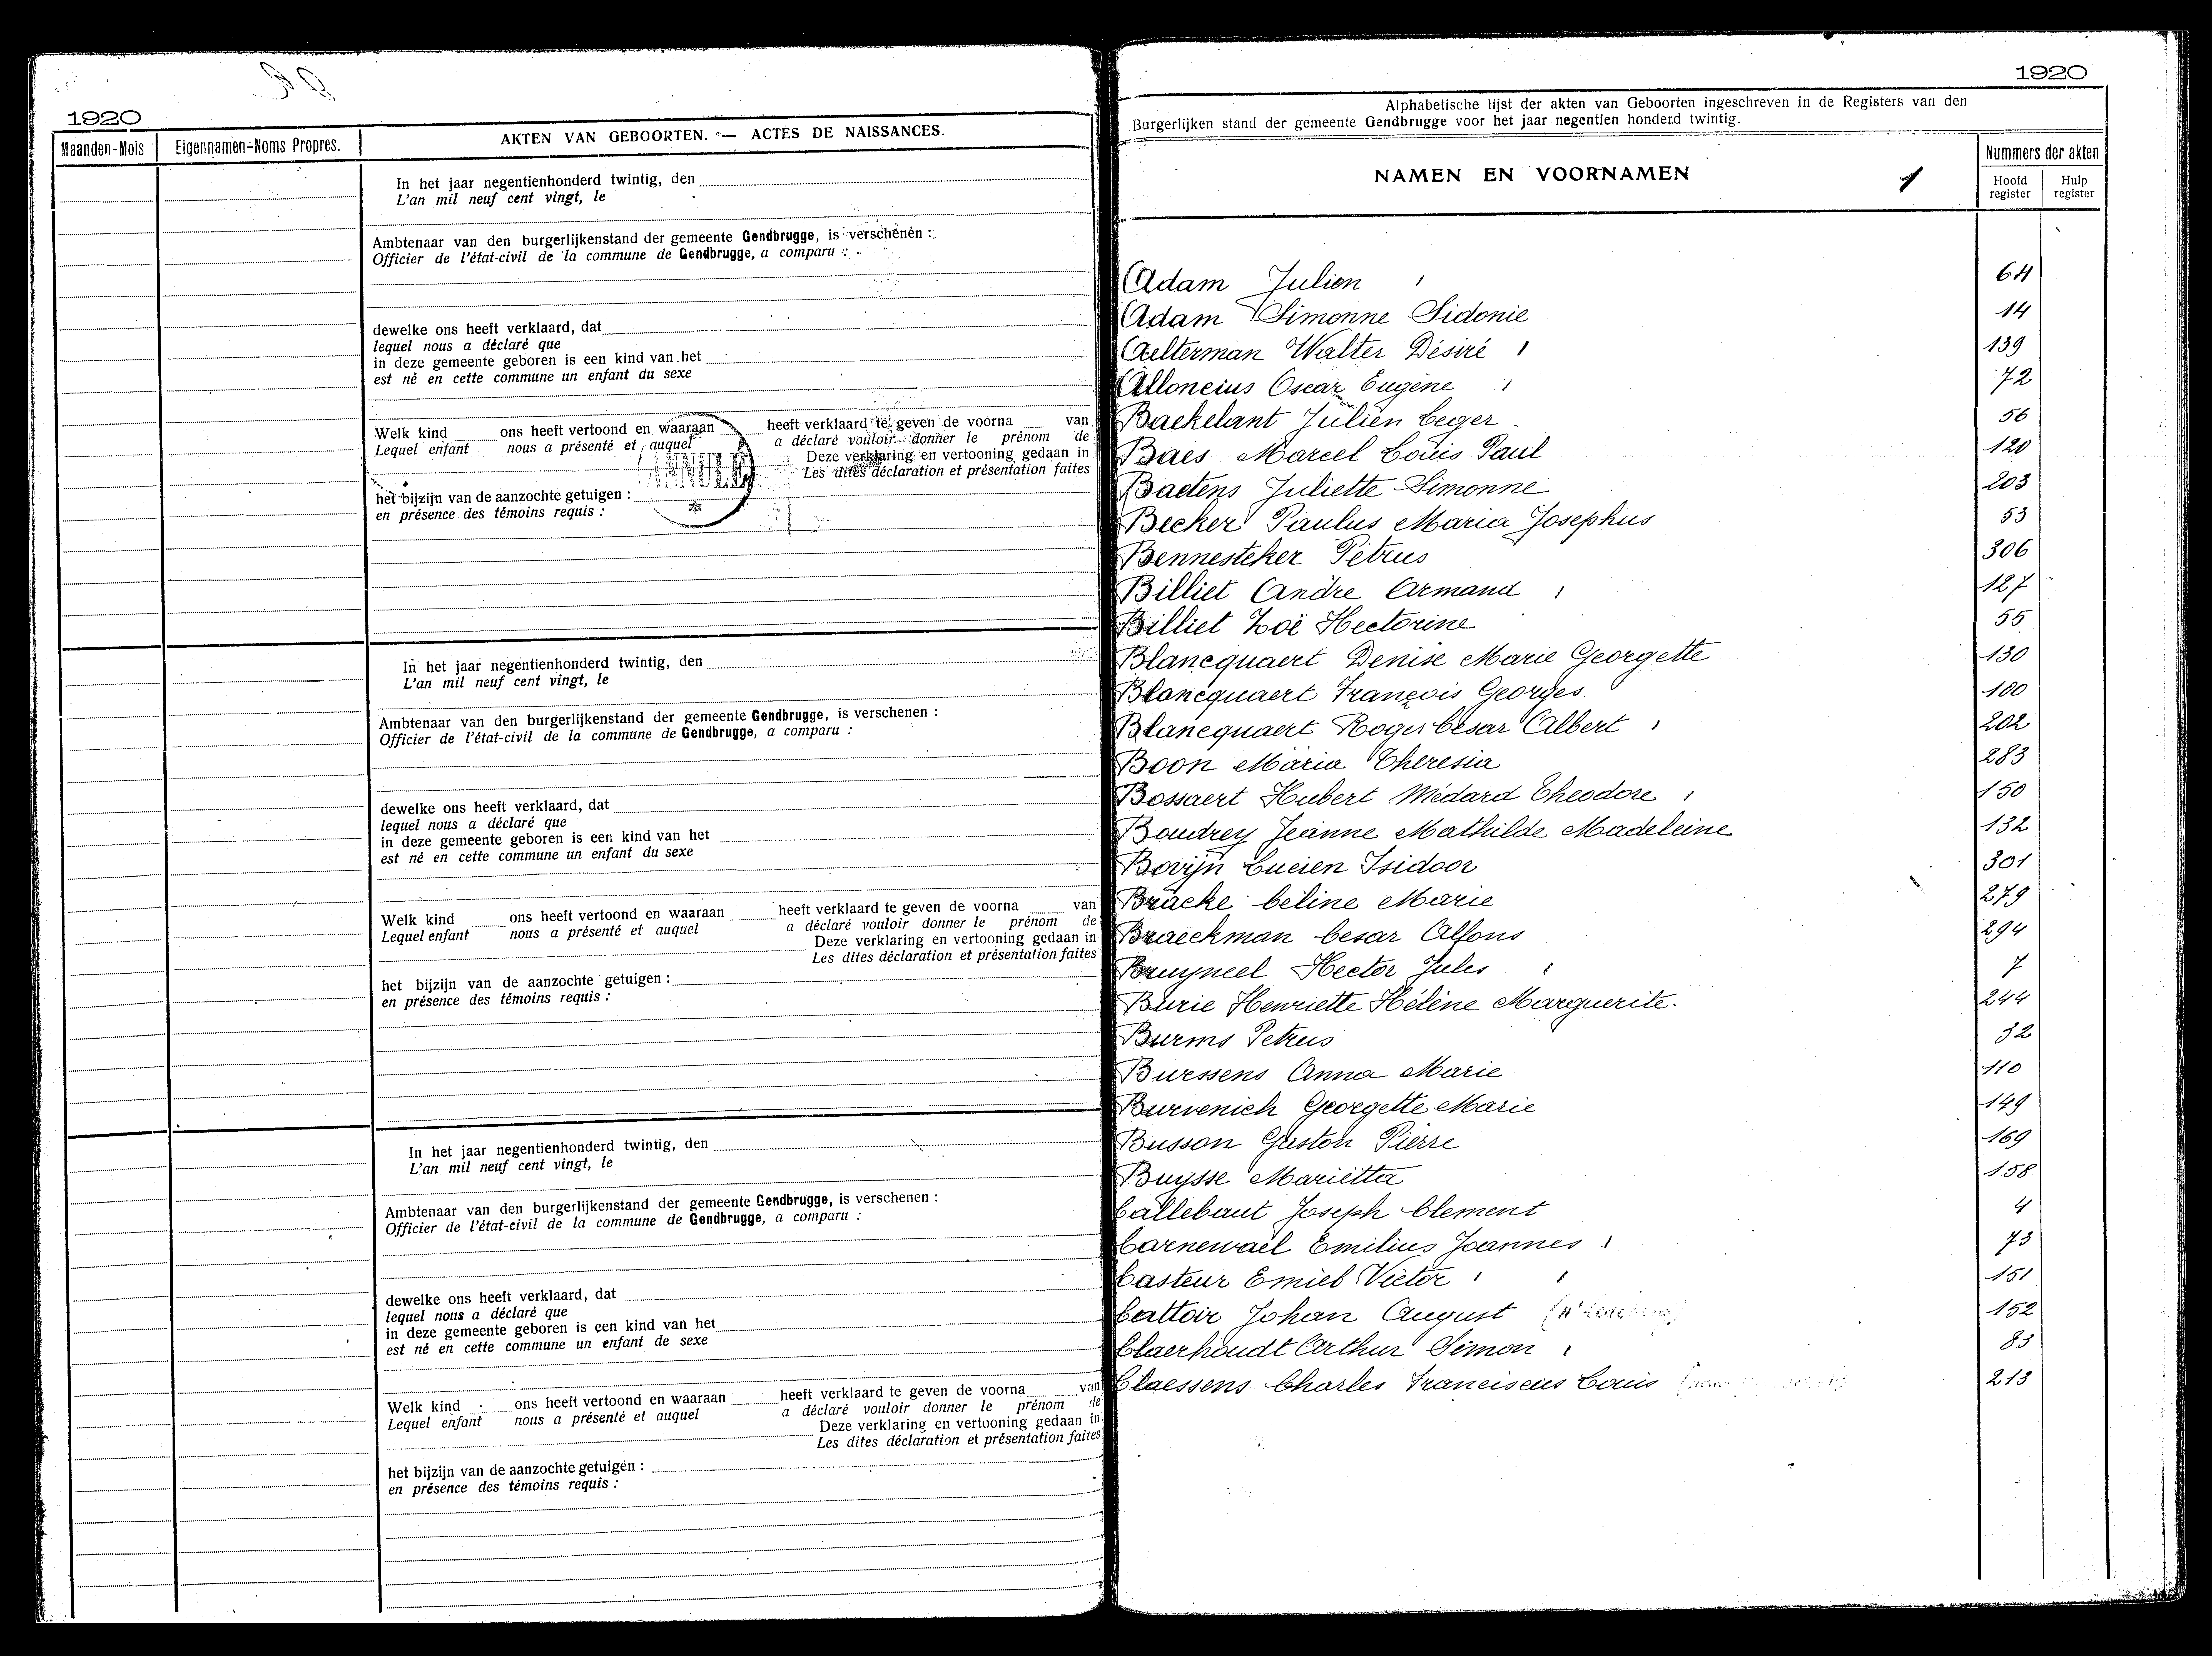 1920
Maanden-Mois
Eigennamen-Noms Propres.
AKTEN VAN GEBOORTEN. — ACTES DE NAISSANCES.
In het jaar negentienhonderd twintig, den
L'an mil neuf cent vingt, le
Ambtenaar van den burgerlijkenstand der gemeente Gendbrugge, is verschenen :
Officier de l'état-civil de la commune de Gendbrugge, a comparu :
dewelke ons heeft verklaard, dat
lequel nous a déclaré que
in deze gemeente geboren is een kind van het
est né en cette commune un enfant du sexe
Welk kind ons heeft vertoond en waaraan heeft verklaard te geven de voorna van
Lequel enfant nous a présenté et auquel a déclaré vouloir donner le prénom de
Deze verklaring en vertooning gedaan in
Les dites déclaration et présentation faites
ANNULÉ
het bijzijn van de aanzochte getuigen :
en présence des témoins requis :
In het jaar negentienhonderd twintig, den
L'an mil neuf cent vingt, le
Ambtenaar van den burgerlijkenstand der gemeente Gendbrugge, is verschenen :
Officier de l'état-civil de la commune de Gendbrugge, a comparu :
dewelke ons heeft verklaard, dat
lequel nous a déclaré que
in deze gemeente geboren is een kind van het
est né en cette commune un enfant du sexe
Welk kind ons heeft vertoond en waaraan heeft verklaard te geven de voorna van
Lequel enfant nous a présenté et auquel a déclaré vouloir donner le prénom de
Deze verklaring en vertooning gedaan in
Les dites déclaration et présentation faites
het bijzijn van de aanzochte getuigen :
en présence des témoins requis :
In het jaar negentienhonderd twintig, den
L'an mil neuf cent vingt, le
Ambtenaar van den burgerlijkenstand der gemeente Gendbrugge, is verschenen :
Officier de l'état-civil de la commune de Gendbrugge, a comparu :
dewelke ons heeft verklaard, dat
lequel nous a déclaré que
in deze gemeente geboren is een kind van het
est né en cette commune un enfant de sexe
Welk kind ons heeft vertoond en waaraan heeft verklaard te geven de voorna van
Lequel enfant nous a présenté et auquel a déclaré vouloir donner le prénom de
Deze verklaring en vertooning gedaan in
Les dites déclaration et présentation faites
het bijzijn van de aanzochte getuigen :
en présence des témoins requis :
1920
Alphabetische lijst der akten van Geboorten ingeschreven in de Registers van den
Burgerlijken stand der gemeente Gendbrugge voor het jaar negentien honderd twintig.
NAMEN EN VOORNAMEN 1
Nummers der akten
Hoofd register
Hulp register
Adam Julien 64
Adam Simonne Sidonie 14
Aelterman Walter Désiré 139
Alloncius Oscar Eugène 72
Baekelant Julien Ceger 56
Baes Marcel Louis Paul 120
Baetens Juliette Simonne 203
Becker Paulus Maria Josephus 53
Bennesteker Petrus 306
Billiet André Armand 127
Billiet Zoë Hectorine 55
Blancquaert Denise Marie Georgette 130
Blancquaert François Georges. 100
Blancquaert Roger César Albert 202
Boon Maria Theresia 283
Bossaert Hubert Médard Théodore 150
Boudrey Jeanne Mathilde Madeleine 132
Bovijn Lucien Isidoor 301
Bracke Céline Marie 279
Braeckman Cesar Alfons 294
Bruyneel Hector Jules 7
Burie Henriette Hélène Marguerite. 244
Burms Petrus 32
Burssens Anna Marie 110
Burvenich Georgette Marie 149
Busson Gaston Pierre 169
Buysse Marietta 158
Callebaut Joseph Clement 4
Carnewael Emilius Joannes 73
Casteur Emiel Victor 151
Cattoir Johan August 152
Claerhoudt Arthur Simon 83
Claessens Charles Franciscus Louis 213